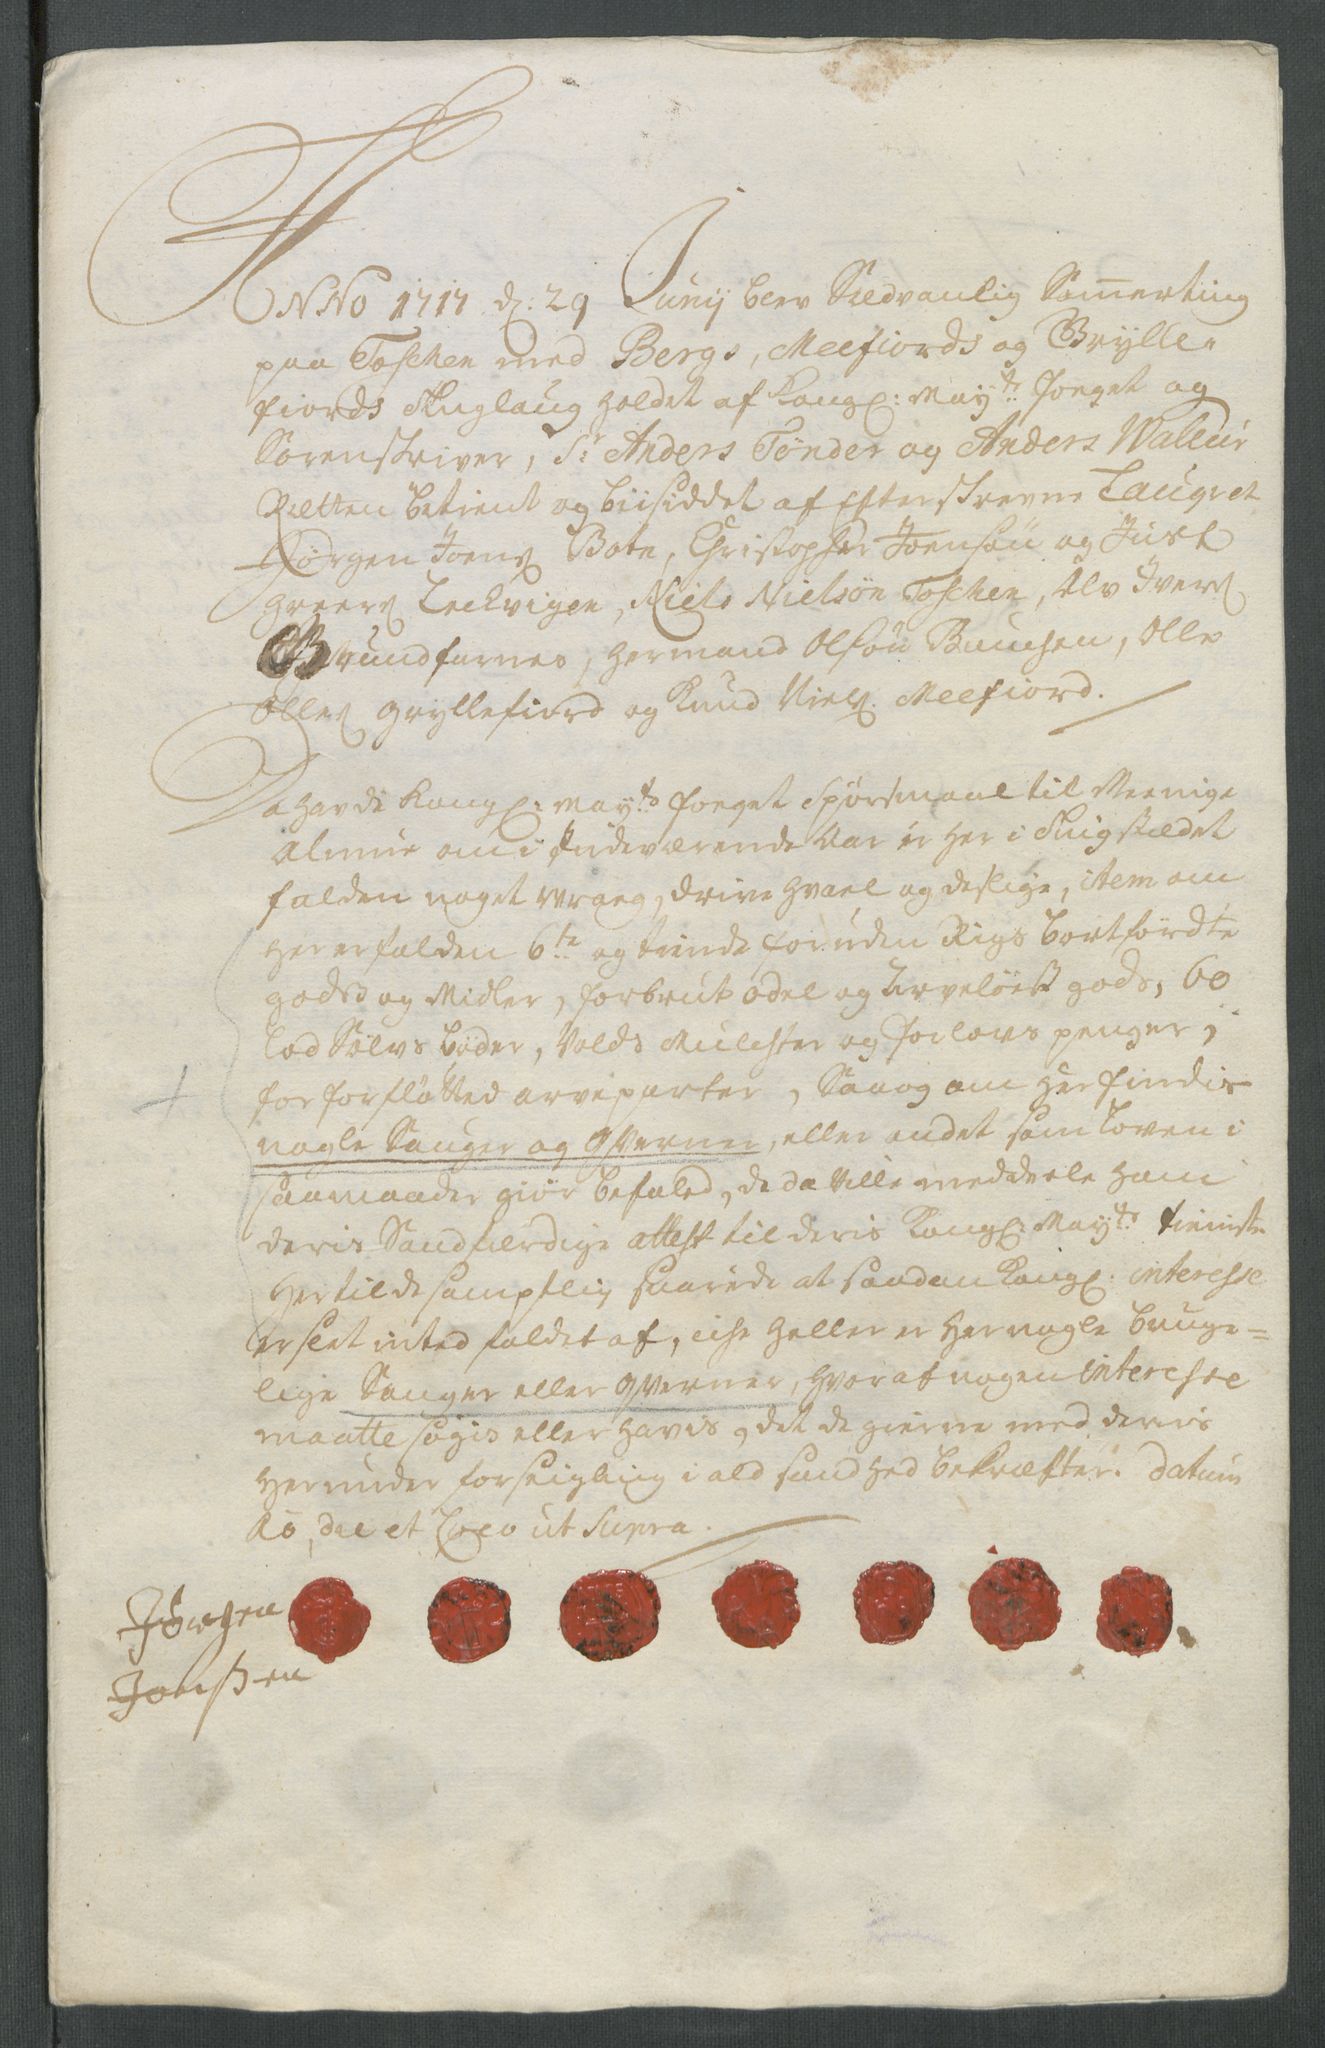 ANNO 1717 d: 29 Junij blev Sædvanlig Sommerting
paa Toschen med Bergs, Meefiords og Grylle-
fiords Tinglaug holdet af Kongl: Mayts: Foeget og
Sorenskriver, Sr Anders Tønder og Anders Walleur
Retten betient og biisiddet af Efterskrevne Laugret
Jørgen Joens: Bote, Christopher Joensøn og Just
Greers: Leckvigen, Niels Nielsøn Toschen, Olv Ivers:
Grundfarnes, Hermand Olsøn Bunchen, Olle
Olles: Gryllefiord og Knud Niels: Meefiord.
Da havde Kongl: Mayts Foeget Spørsmaal til Meenige
Almue om i Indeværende Aar er her i Tingstædet
falden noget Wrag, drive hvael og deslige, item om
her er falden 6te og tiende for uden Rigs bortførdte
gods og Midler, forbrut odel og Arveløst gods, 60
Lod Sølvs bøder, Volds Mulchter og Forlovs penger,
for forfløtted arveparter, Saa og om her findis
nogle Sauger og Qverner, eller andet som Loven i
saamaader giør befaled, de da Ville meddeele ham
deris Sandfærdige attest til deris Kongl: Mayts: tieniste
Hertil de samptlig svarede at saadan Kongl: interesse
er slet inted faldet af, eiche heller er her nogle bruge=
lige Sauger eller Qverner, hvoraf nogen interesse
maatte søgis eller havis, det de gierne med deris
herunder forseigling i ald sandhed bekræfter. Datum
Ao, die et Loco ut Supra.
Jørgen
Jonssen